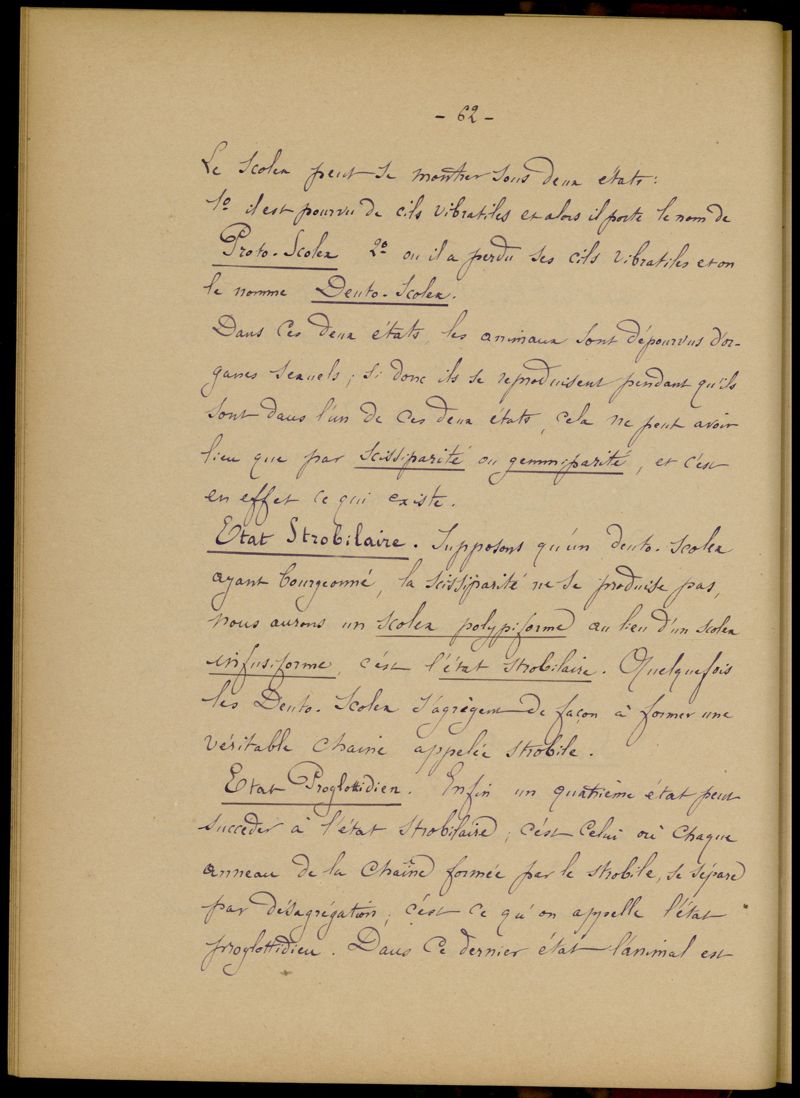 - 62 -
Le Scolex peut se montrer sous deux états :
1º il est pourvu de cils vibratiles et alors il porte le nom de
Proto-Scolex 2º ou il a perdu ses cils vibratiles et on
le nomme Deuto-Scolex.
Dans ces deux états, les animaux sont dépourvus d'or-
ganes sexuels ; si donc ils se reproduisent pendant qu'ils
sont dans l'un de ces deux états, cela ne peut avoir
lieu que par scissiparité ou gemmiparité, et c'est
en effet ce qui existe.
Etat Strobilaire. Supposons qu'un deuto-scolex
ayant bourgeonné, la scissiparité ne se produise pas,
nous aurons un scolex polypiforme au lieu d'un scolex
infusiforme, c'est l'état strobilaire. Quelquefois
les Deuto-Scolex s'agrègent de façon à former une
véritable chaine appelée strobile.
Etat Proglottidien. Enfin un quatrième état peut
succéder à l'état strobilaire ; c'est celui où chaque
anneau de la chaîne formée par le strobile, se sépare
par désagrégation, c'est ce qu'on appelle l'état
proglottidien. Dans ce dernier état l'animal est